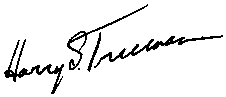 Harry S. Truman